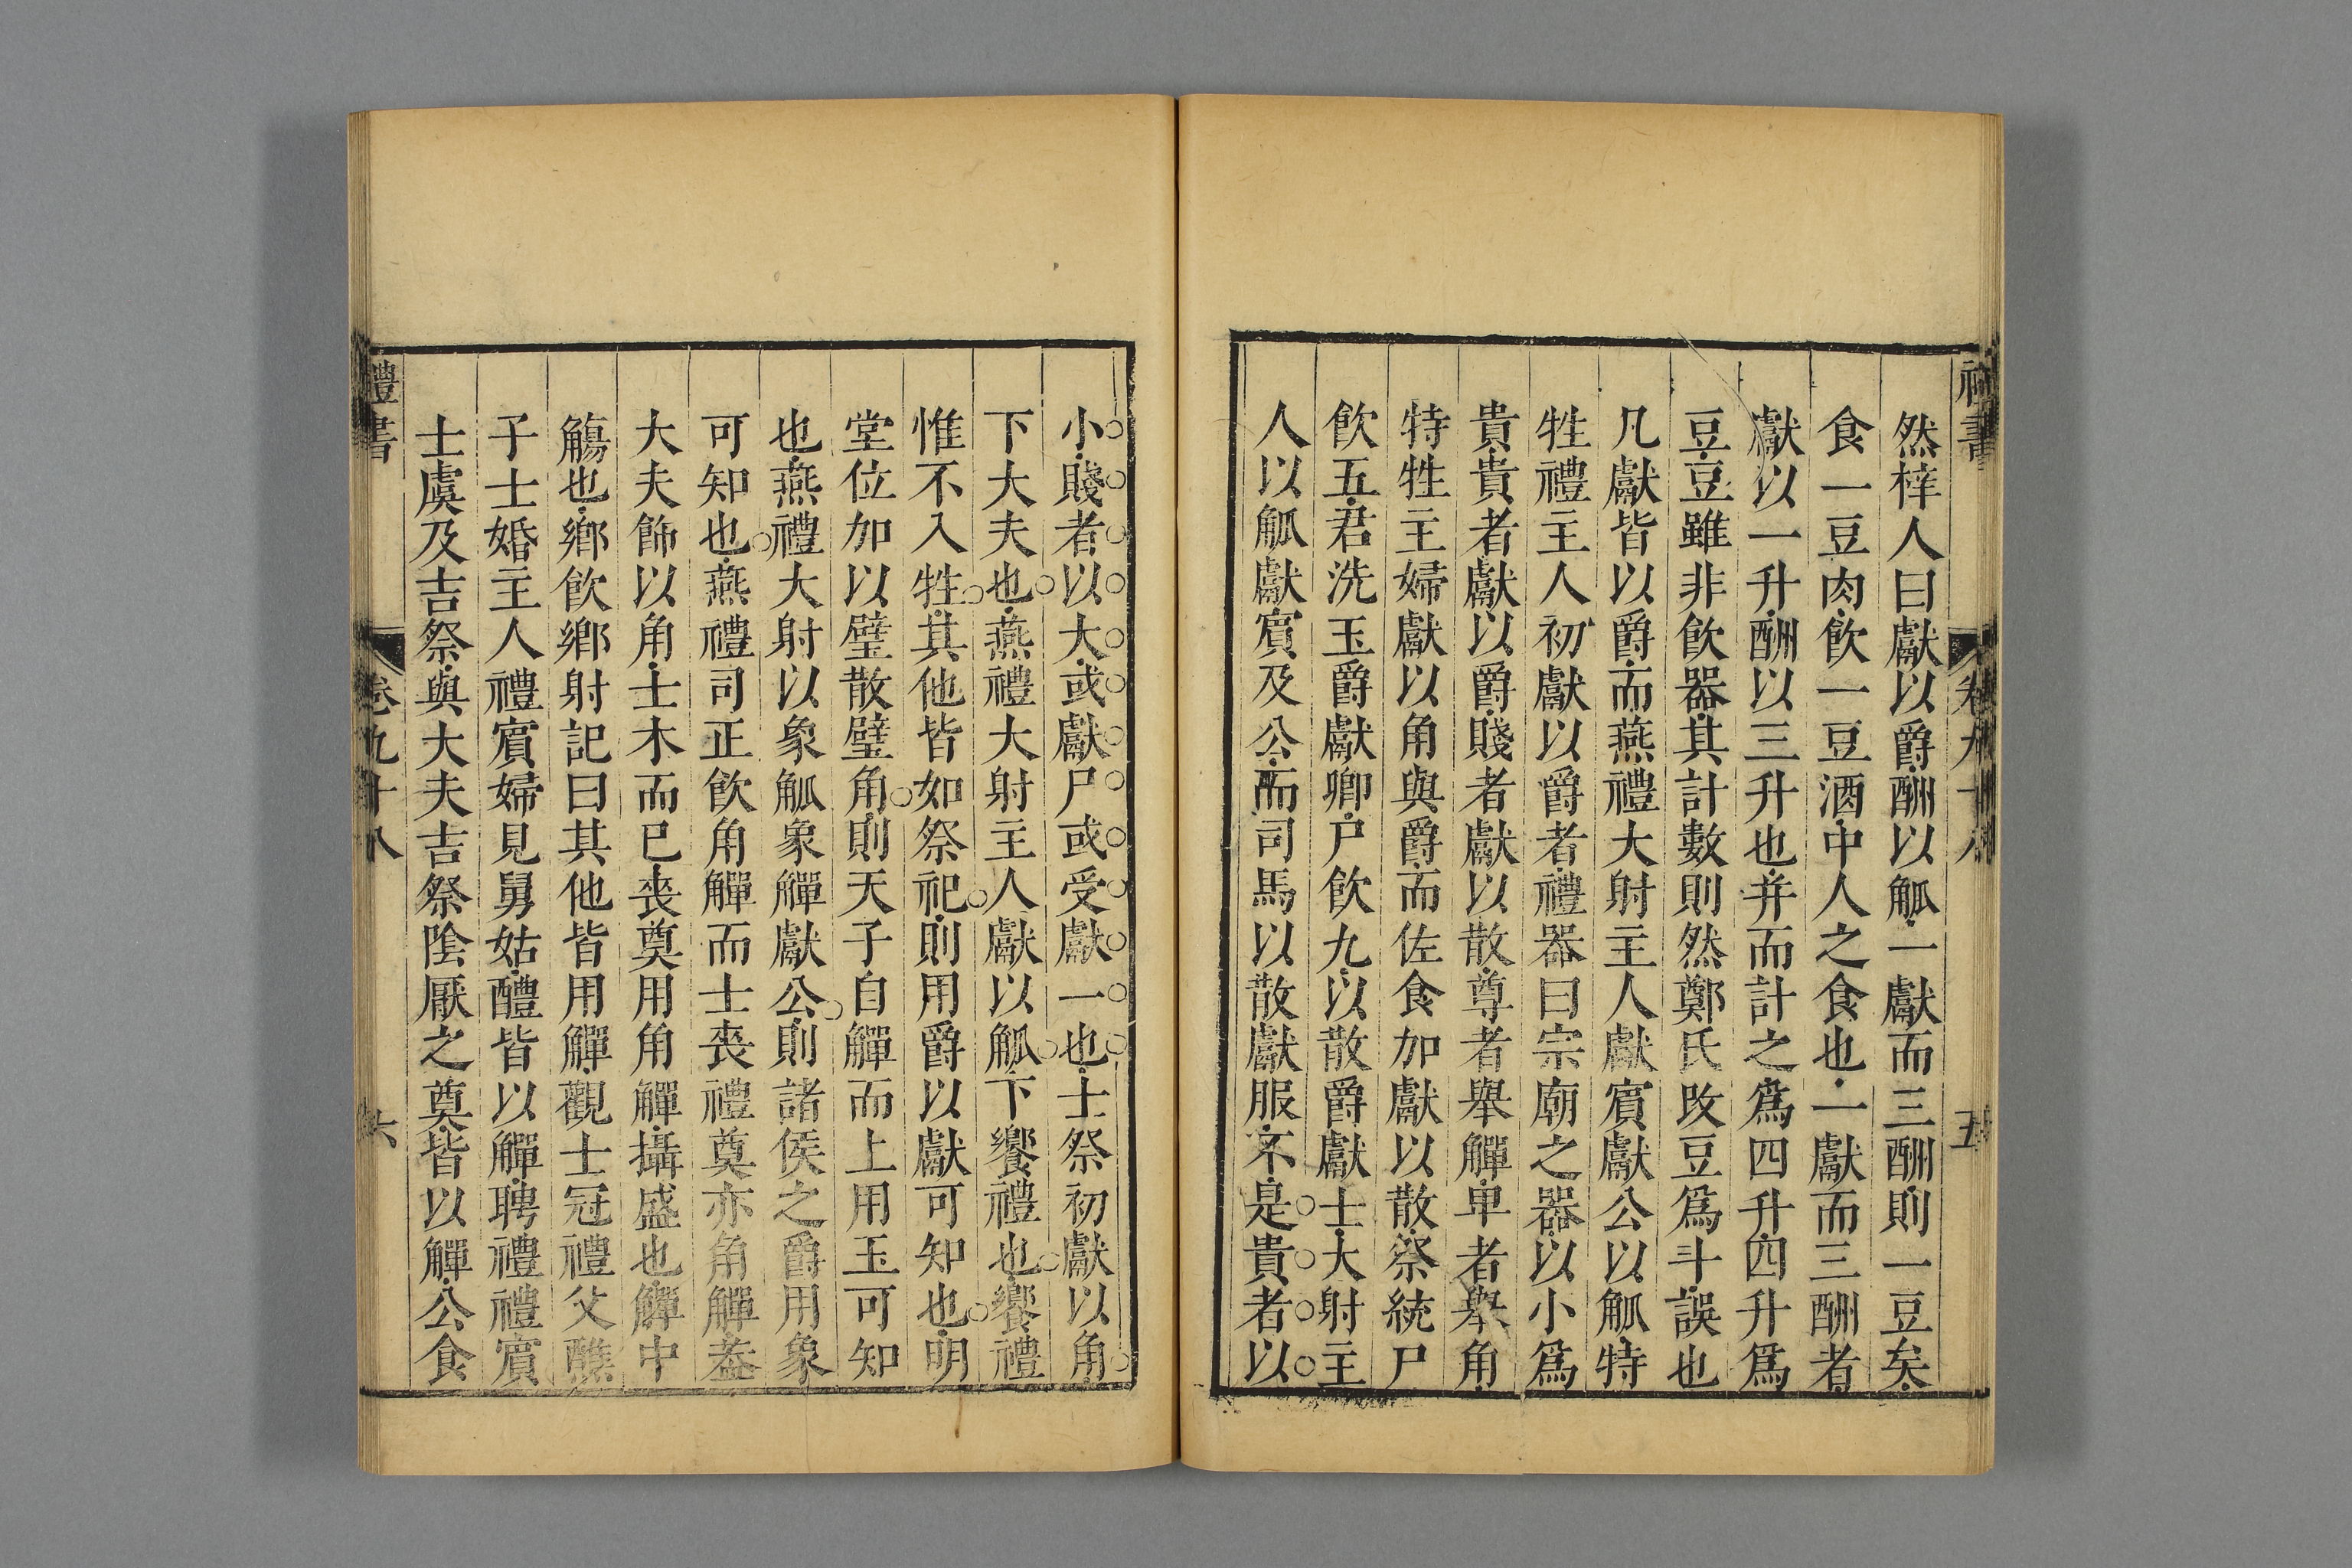 禮書 卷九十八 五
然梓人曰獻以爵酬以觚一獻而三酬則一豆矣
食一豆肉飲一豆酒中人之食也一獻而三酬者
獻以一升酬以三升也并而計之爲四升四升爲
豆豆雖非飲器其計數則然鄭氏改豆爲斗誤也
凡獻皆以爵而燕禮大射主人獻賔獻公以觚特
牲禮主人初獻以爵者禮器曰宗廟之器以小爲
貴貴者獻以爵賤者獻以散尊者舉觶卑者舉角
特牲主婦獻以角與爵而佐食加獻以散祭統尸
飲五君洗玉爵獻卿尸飲九以散爵獻士大射主
人以觚獻賔及公而司馬以散獻服不是貴者以
小賤者以大或獻尸或受獻一也士祭初獻以角
下大夫也燕禮大射主人獻以觚下饗禮也饗禮
惟不入牲其他皆如祭祀則用爵以獻可知也明
堂位加以璧散璧角則天子自觶而上用玉可知
也燕禮大射以象觚象觶獻公則諸侯之爵用象
可知也燕禮司正飲角觶而士喪禮奠亦角觶葢
大夫飾以角士木而已喪奠用角觶攝盛也觶中
觴也鄉飲鄉射記曰其他皆用觶觀士冠禮父醮
子士婚主人禮賔婦見舅姑醴皆以觶聘禮禮賔
士虞及吉祭與大夫吉祭陰厭之奠皆以觶公食
禮書 卷九十八 六